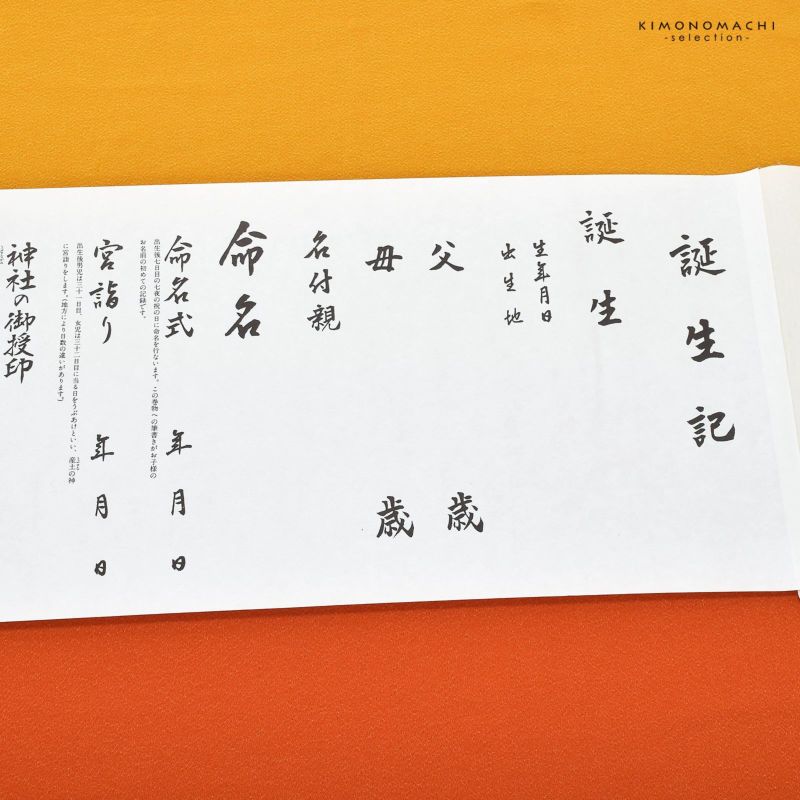 KIMONOMACHI
-selection-
誕生記
誕生
生年月日
出生地
父 歳
母 歳
名付親
命名
命名式 年月日
出生後七日目の七夜の祝の日に命名を行ないます。この巻物への筆書きがお子様の
お名前の初めての記録です。
宮詣り 年月日
出生後男児は三十一日目、女児は三十二日目に当る日をうぶあけといい、産土の神
に宮詣りをします。(地方により日数の違いがあります。)
神社の御授印